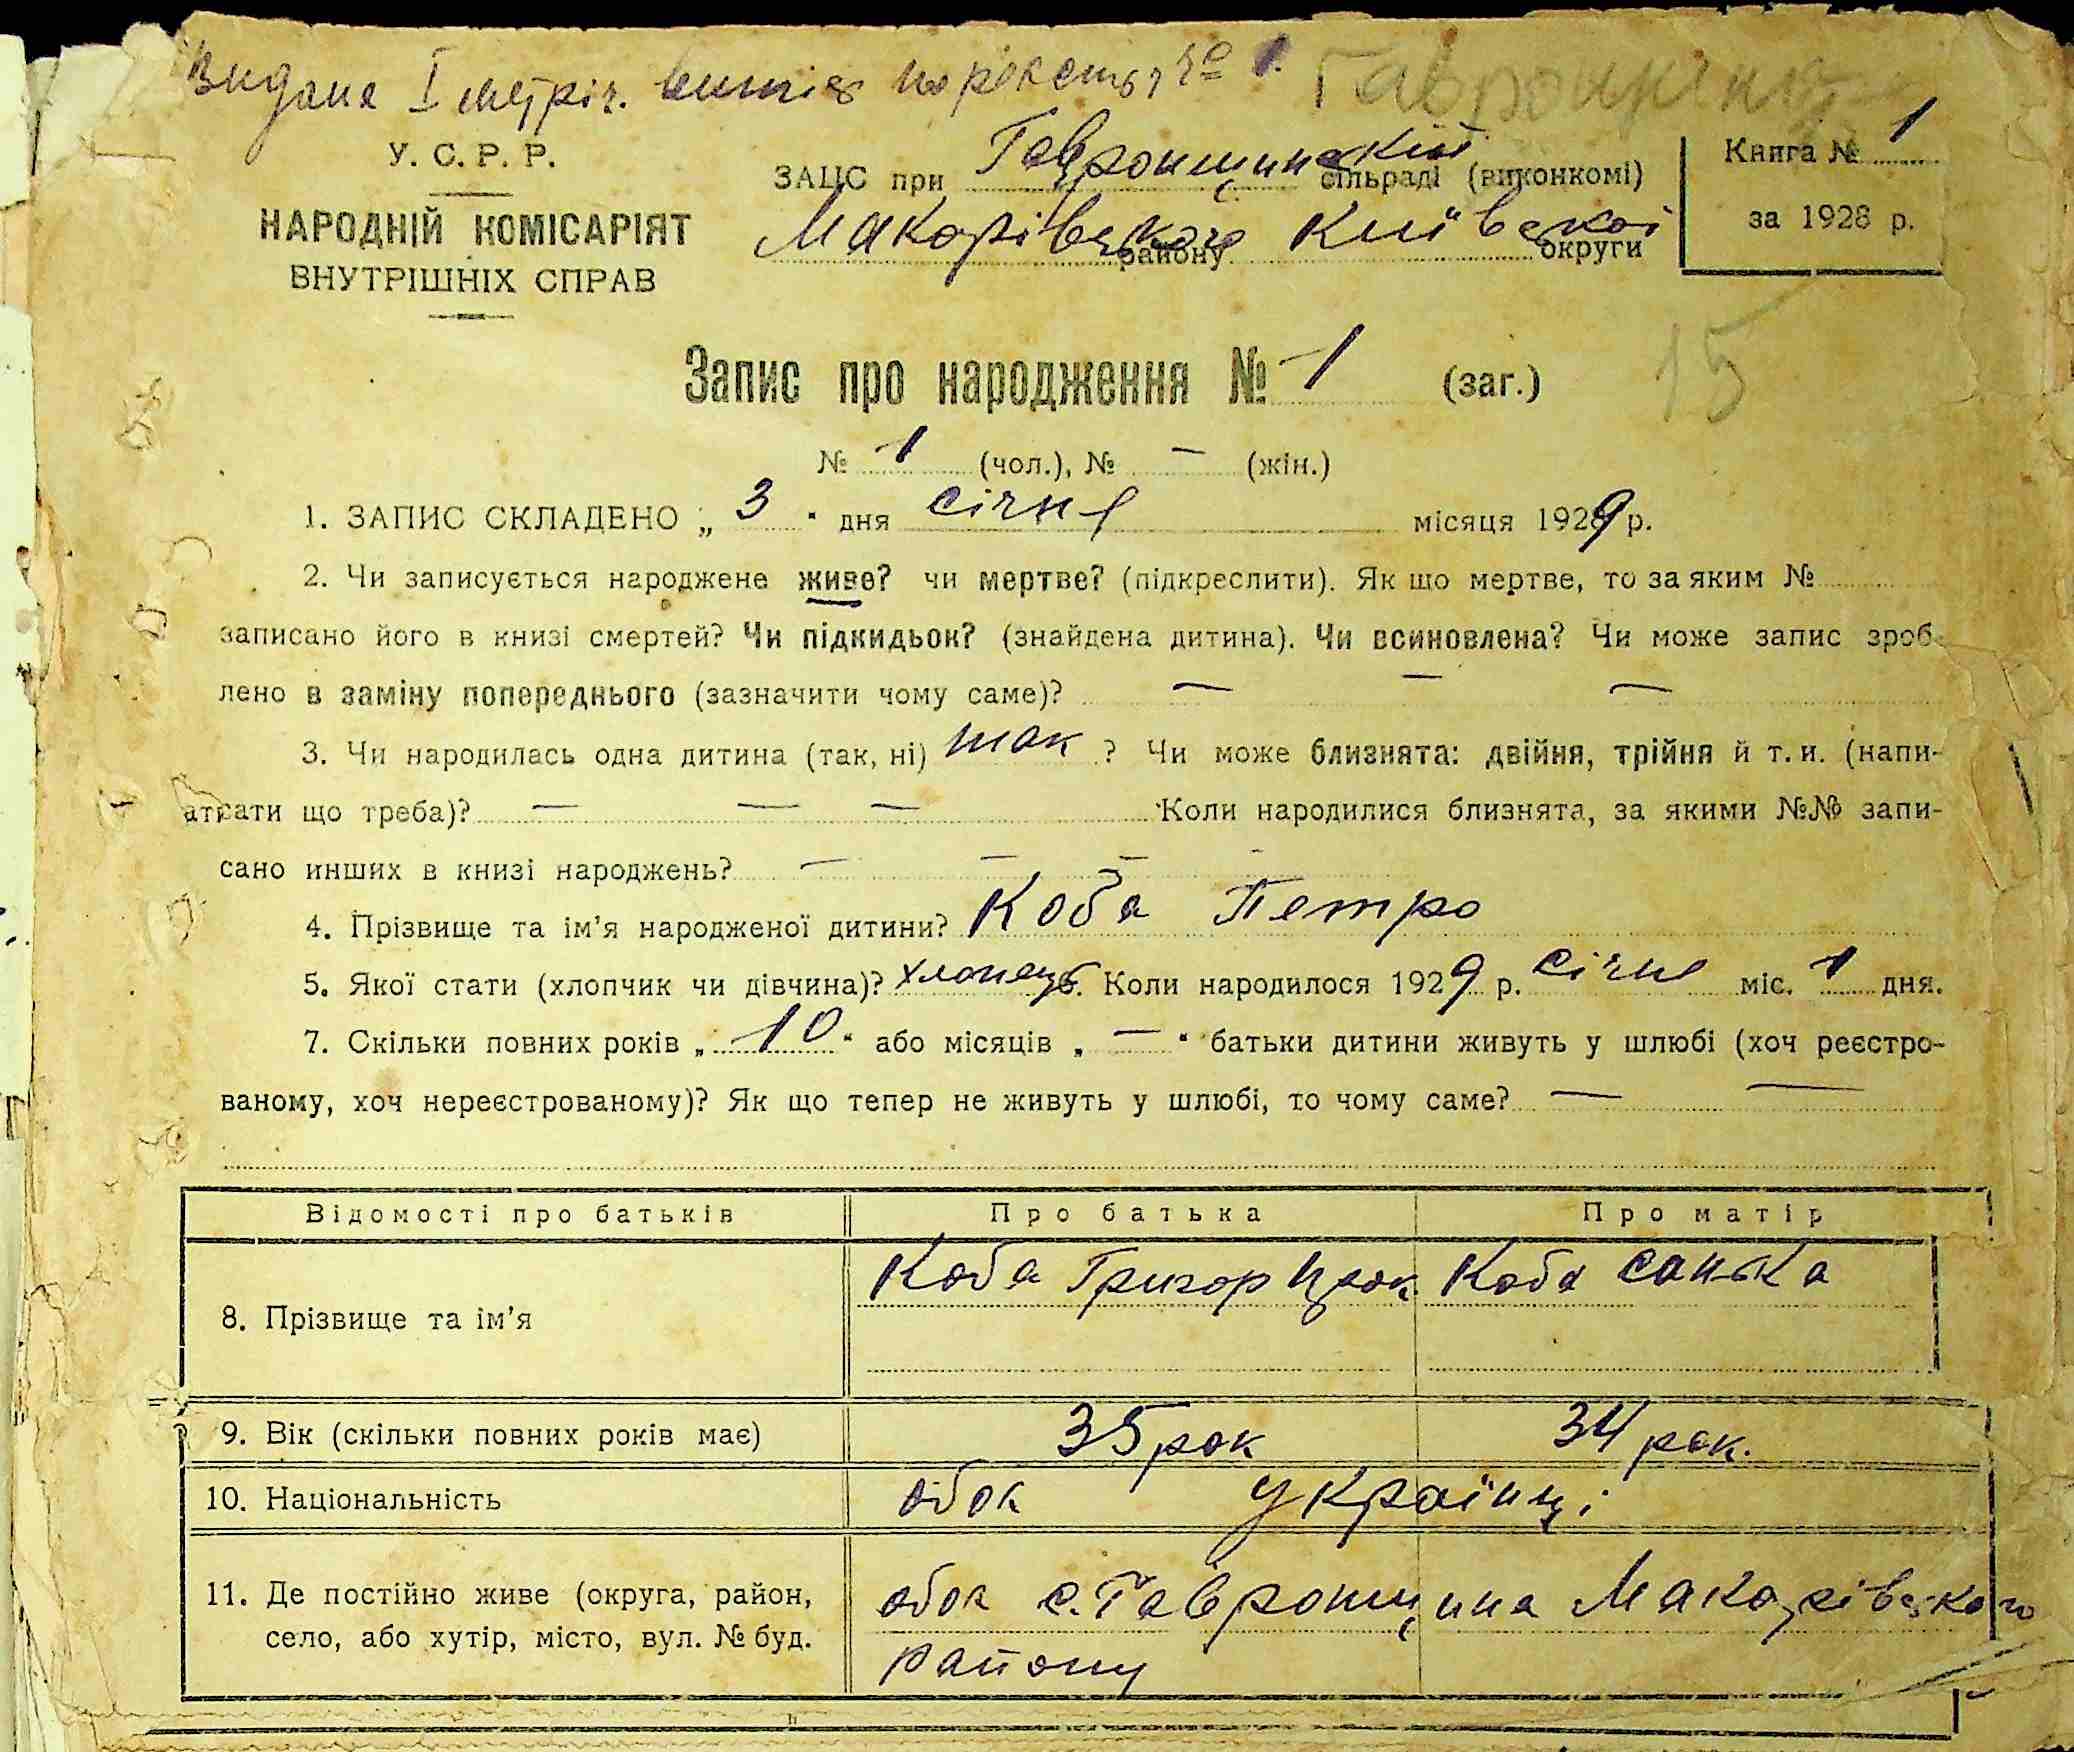 Видана I метріч. витяг по реєстр. № 1.
Гавронщина
У. С. Р. Р.
НАРОДНІЙ КОМІСАРІЯТ
ВНУТРІШНІХ СПРАВ
ЗАЦС при Гавронщинській сільраді (виконкомі)
Макарівського району Київської округи
Книга № 1
за 1928 р.
Запис про народження № 1 (заг.)
15
№ 1 (чол.), № — (жін.)
1. ЗАПИС СКЛАДЕНО „ 3 " дня січня місяця 1929 р.
2. Чи записується народжене живе? чи мертве? (підкреслити). Як що мертве, то за яким №
записано його в книзі смертей? Чи підкидьок? (знайдена дитина). Чи всиновлена? Чи може запис зроб-
лено в заміну попереднього (зазначити чому саме)? — — —
3. Чи народилась одна дитина (так, ні) так ? Чи може близнята: двійня, трійня й т. и. (напи-
сати що треба)? — — — Коли народилися близнята, за якими №№ запи-
сано инших в книзі народжень? — — —
4. Прізвище та ім'я народженої дитини? Коба Петро
5. Якої стати (хлопчик чи дівчина)? хлопець 6. Коли народилося 1929 р. січня міс. 1 дня.
7. Скільки повних років „ 10 " або місяців „ — " батьки дитини живуть у шлюбі (хоч реєстро-
ваному, хоч нереєстрованому)? Як що тепер не живуть у шлюбі, то чому саме? — —
Відомості про батьків Про батька Про матір
8. Прізвище та ім'я Коба Григор Коба Санька
9. Вік (скільки повних років має) 35 рок 34 рок.
10. Національність обоє українці
11. Де постійно живе (округа, район, обоє с. Гавронщина Макарівського
село, або хутір, місто, вул. № буд. району